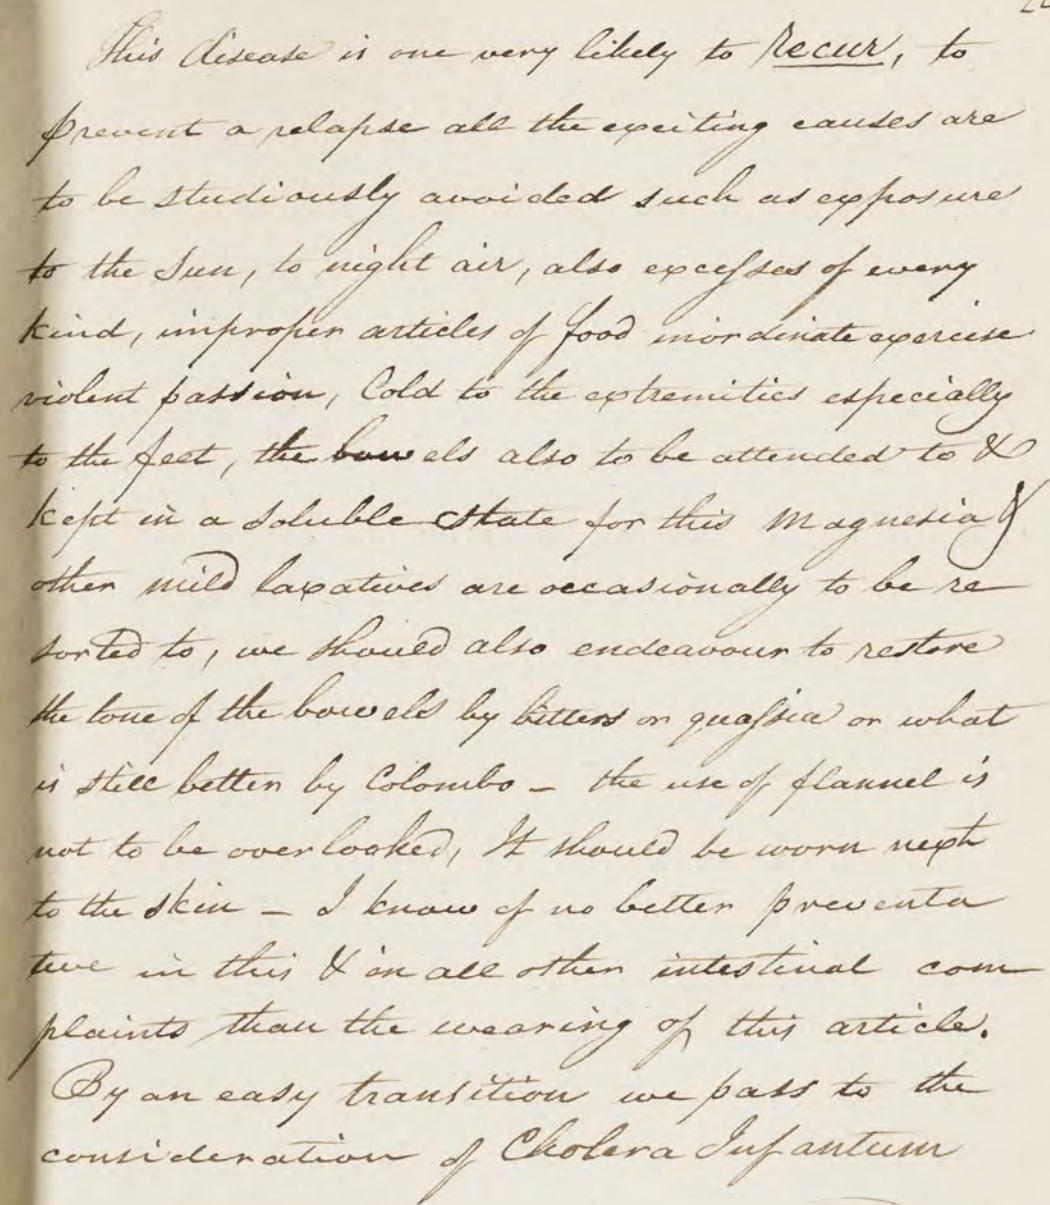 This disease is one very likely to recur, to
prevent a relapse all the exciting causes are
to be studiously avoided such as exposure
to the Sun, to night air, also excesses of every
kind, improper articles of food inordinate exercise
violent passion, Cold to the extremities especially
to the feet, the bowels also to be attended to &
kept in a soluble state for this Magnesia &
other mild laxatives are occasionally to be re
sorted to, we should also endeavour to restore
the tone of the bowels by bitters or quassia or what
is still better by Colombo - the use of flannel is
not to be overlooked, It should be worn next
to the skin - I know of no better preventa
tive in this & in all other intestinal com
plaints than the wearing of this article.
By an easy transition we pass to the
consideration of Cholera Infantum